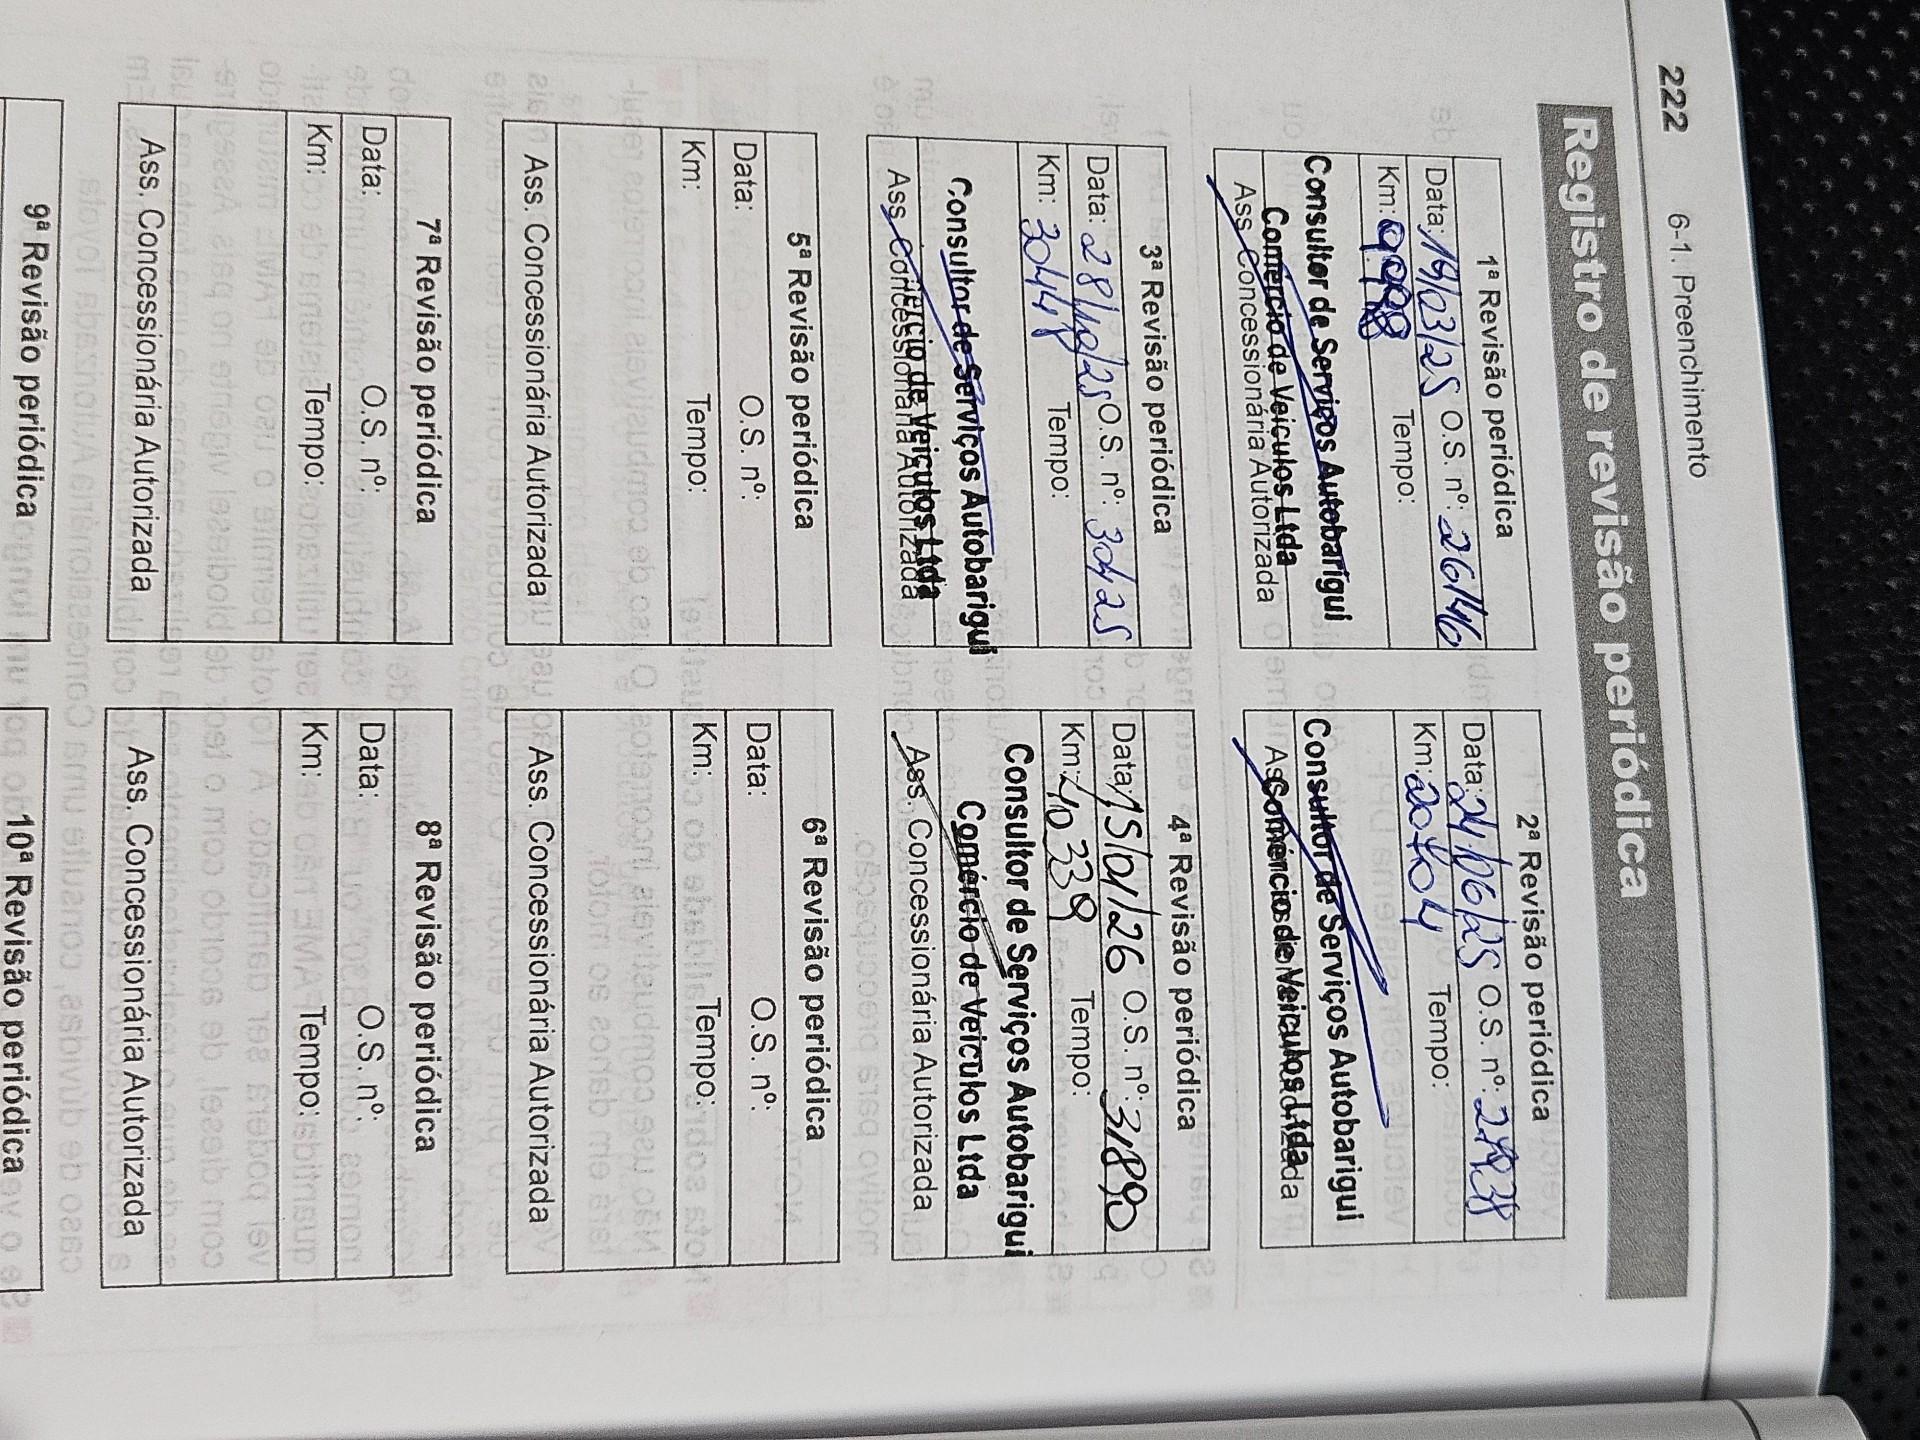 222 6-1. Preenchimento
Registro de revisão periódica
1ª Revisão periódica
Data: 19/03/25 O.S. nº: 26146
Km: Tempo:
Consultor de Serviços Autobarigui
Comércio de Veiculos Ltda
Ass. Concessionária Autorizada
2ª Revisão periódica
Data: 24/06/25 O.S. nº:
Km: Tempo:
Consultor de Serviços Autobarigui
Comércio de Veiculos Ltda
3ª Revisão periódica
Data: 28/10/25 O.S. nº: 30425
Km: 30448 Tempo:
Consultor de Serviços Autobarigui
Comércio de Veiculos Ltda
Ass. Concessionária Autorizada
4ª Revisão periódica
Data: 15/01/26 O.S. nº: 31890
Km: 40339 Tempo:
Consultor de Serviços Autobarigui
Comércio de Veiculos Ltda
Ass. Concessionária Autorizada
5ª Revisão periódica
Data: O.S. nº:
Km: Tempo:
Ass. Concessionária Autorizada
6ª Revisão periódica
Data: O.S. nº:
Km: Tempo:
Ass. Concessionária Autorizada
7ª Revisão periódica
Data: O.S. nº:
Km: Tempo:
Ass. Concessionária Autorizada
8ª Revisão periódica
Data: O.S. nº:
Km: Tempo:
Ass. Concessionária Autorizada
9ª Revisão periódica
10ª Revisão periódica